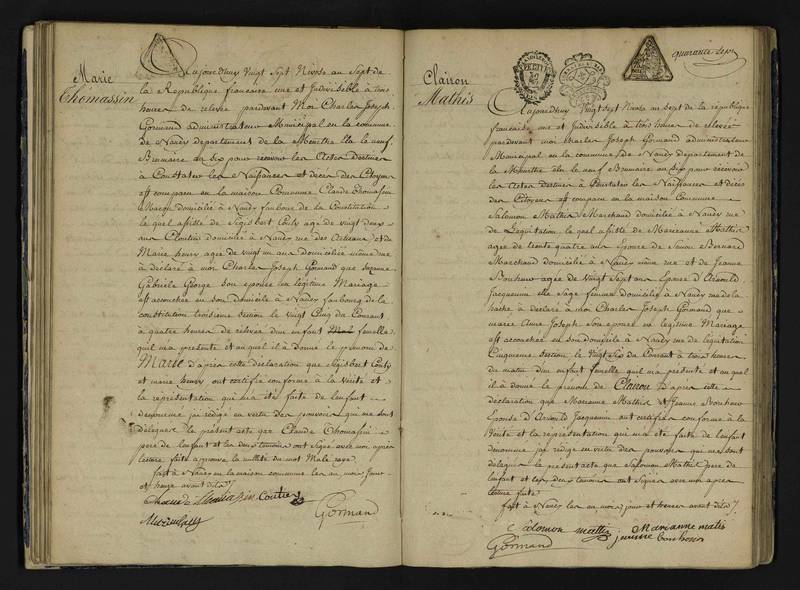 Marie
Thomassin
Aujourdhuy vingt Sept Nivose an Sept de
la Republique francaise une et Indivisible a trois
heures de relevée pardevant Moi Charles Joseph
Gormand administrateur Municipal en la commune
de Nancy departement de la Meurthe Elu le neuf
Brumaire an six pour recevoir les Actes destinés
a Constater les Naissances et deces des Citoyens
est comparu en la maison Commune Claude Thomassin
Maçon domicilié a Nancy faubourg de la Constitution
lequel assisté de Sigisbert Couty agé de vingt deux
ans Cloutier domicilié a Nancy rue des Artisans et de
Marie henry agée de vingt un ans domiciliée même rue
a déclaré a moi Charles Joseph Gormand que Suzanne
Gabriele George Son epouse en legitime Mariage
est accouchée en son domicile a Nancy faubourg de la
constitution troisieme Section le vingt Cinq du Courant
à quatre heures de relevée d'un enfant Mal femelle
quil ma présenté et auquel il à donné le prenom de
Marie d'après cette déclaration que Sigisbert Couty
et marie henry ont certifié conforme à la vérité et
la représentation qui ma été faite de lenfant
denommé jai rédigé en vertu des pouvoirs qui me sont
délegués le présent acte que Claude Thomassin
pere de lenfant et les deux temoins ont signé avec moi après
lecture faite approuvé la nullité du mot Male rayé
fait à Nancy en la maison commune les an, mois jour
et heure avant dits
Thomassin Couty
Gormand
quarante Sept
Clairon
Mathis
Aujourdhuy Vingt Sept Nivose an Sept de la république
francaise une et Indivisible à trois heures de relevée
pardevant moi Charles Joseph Gormand administrateur
Municipal en la commune de Nancy département de
la Meurthe élu le neuf Brumaire an Six pour recevoir
les Actes destinés à Constater les Naissances et décès
des Citoyens est comparu en la maison Commune
Salomon Mathis Marchand domicilié a Nancy rue
de Légalitation lequel assisté de Marieanne Mathis
agée de trente quatre ans Epouse de Simon Bernard
Marchand domicilié a Nancy même rue et de Jeanne
Bonheur agée de vingt Sept ans Epouse d'Arnould
Jacquemin elle Sage femme domicilié a Nancy rue de la
hache à déclaré a moi Charles Joseph Gormand que
marie Anne Joseph Son epouse en légitime Mariage
est accouchée en Son domicile a Nancy rue de
Cinquieme Section le Vingt Six du Courant à trois heures
du matin d'un enfant femelle quil ma présenté et auquel
il à donné le prenom de Clairon D'après cette
déclaration que Marianne Mathis et Jeanne Bonheur
Epouse d'Arnould Jacquemin ont certifié conforme à la
Vérité et la représentation qui ma été faite de lenfant
denommé jai rédigé en vertu des pouvoirs qui me sont
délegués le présent acte que Salomon Mathis pere de
lenfant et les deux temoins ont Signés avec moi après
lecture faite
fait à Nancy les an mois jour et heures avant dits
Salomon Mathis Marianne matis
jeanne bonheur
Gormand